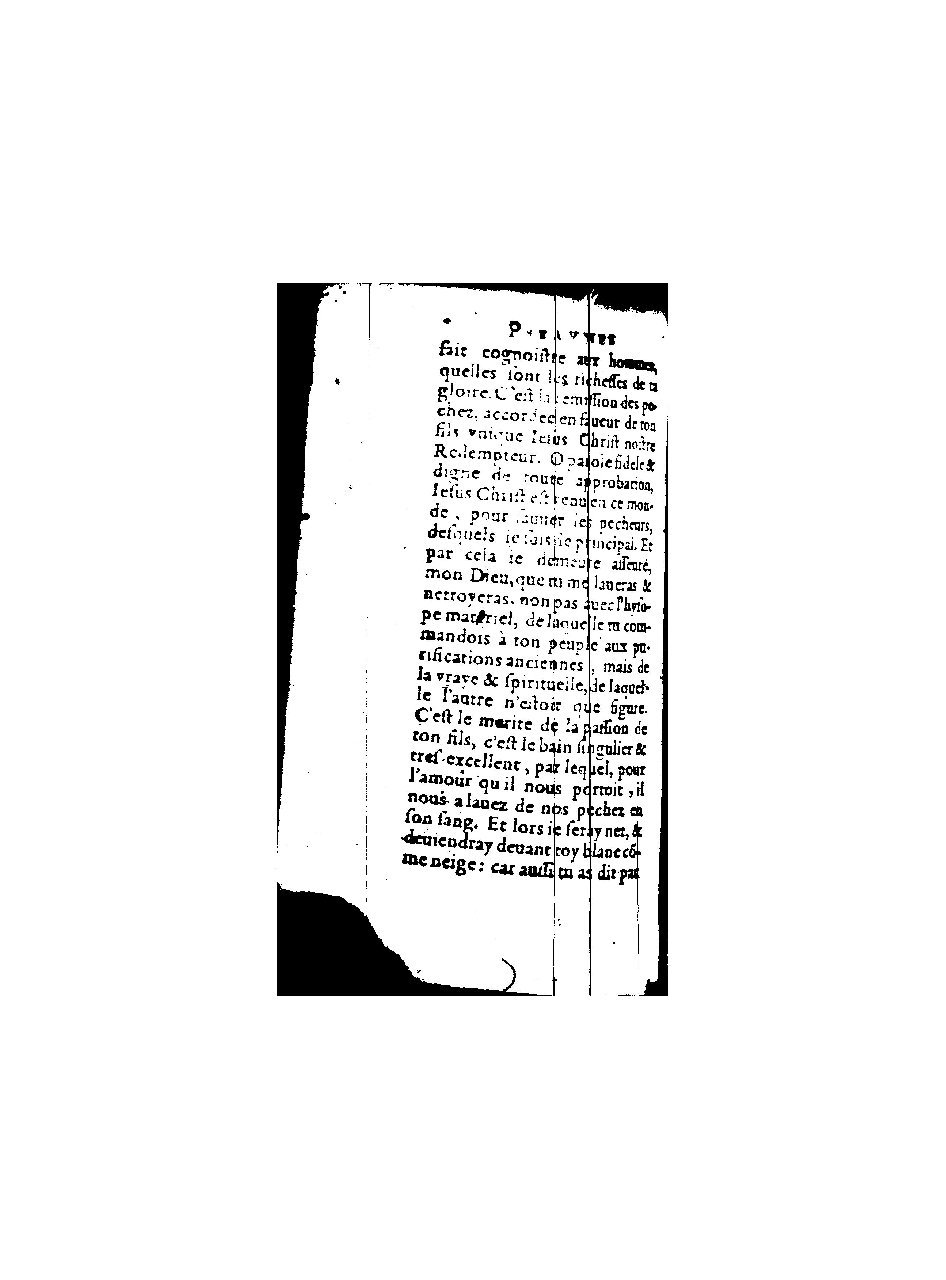 PSEAVMES
fait cognoistre aux hommes,
quelles sont les richesses de ta
gloire. C'est la remission des pe-
chez, accordee en faueur de ton
fils vnique Iesus Christ nostre
Redempteur. O parole fidele &
digne de toute approbation,
Iesus Christ est venu en ce mon-
de, pour sauuer les pecheurs,
desquels ie suis le principal. Et
par cela ie demeure asseuré,
mon Dieu, que tu me laueras &
nettoyeras, non pas auec l'hyso-
pe materiel, de laquelle tu com-
mandois à ton peuple aux pu-
rifications anciennes, mais de
la vraye & spirituelle, de laquel-
le l'autre n'estoit que figure.
C'est le merite de la passion de
ton fils, c'est le bain singulier &
tres-excellent, par lequel, pour
l'amour qu'il nous portoit, il
nous a lauez de nos pechez en
son sang. Et lors ie seray net, &
deuiendray deuant toy blanc cõ-
me neige: car aussi tu as dit par